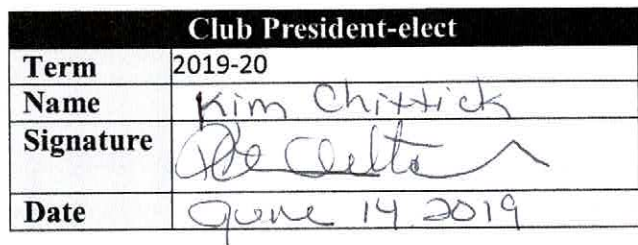 Club President-elect
Term 2019-20
Name Kim Chittick
Signature
Date June 14 2019